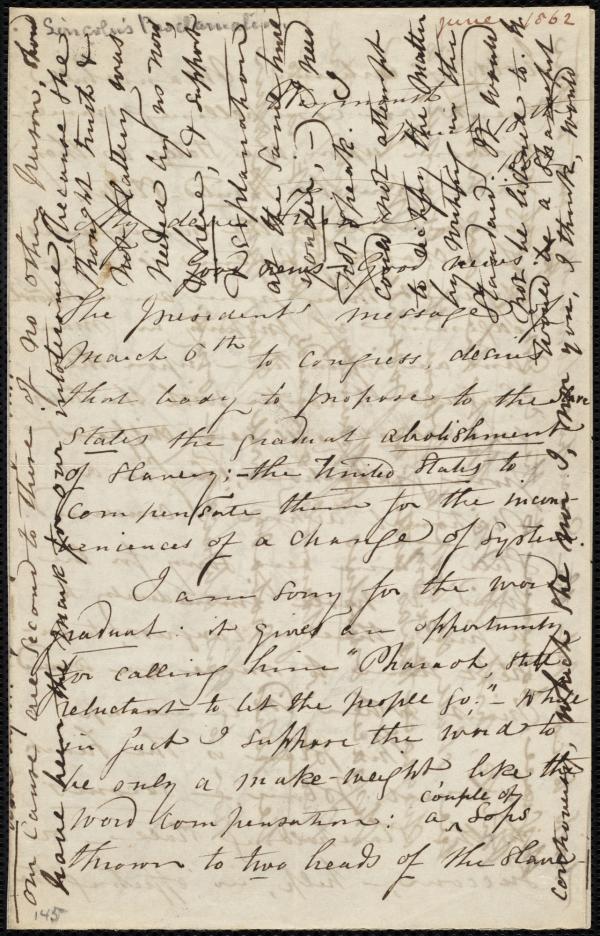 Lincoln's Proclamation.
June 1862
Weymouth
March
My dear Friend
Good news! Good news!
The President's message of
March 6th to Congress, desires
that body to propose to the slave
States the gradual abolishment
of Slavery;—the United States to
compensate them for the incon-
veniences of a change of system.
I am sorry for the word
gradual: it gives an opportunity
for calling him "Pharaoh, still
reluctant to let the people go."— While
in fact I suppose the word to
be only a make-weight like the
word compensation: a couple of sops
thrown to two heads of the slave-
145
our cause are second to those of no other person, should
have been the mark for our intolerance (because she
thought truth &
not flattery was
needed by us now
& here, & support
& explanation
at the same time
wonder,—) need
not speak. I
could not attempt
to rectify the matter
by writing in the
Standard. It would
not be listened to. It
would be a
controversy, which she nor I, nor you, I think, would